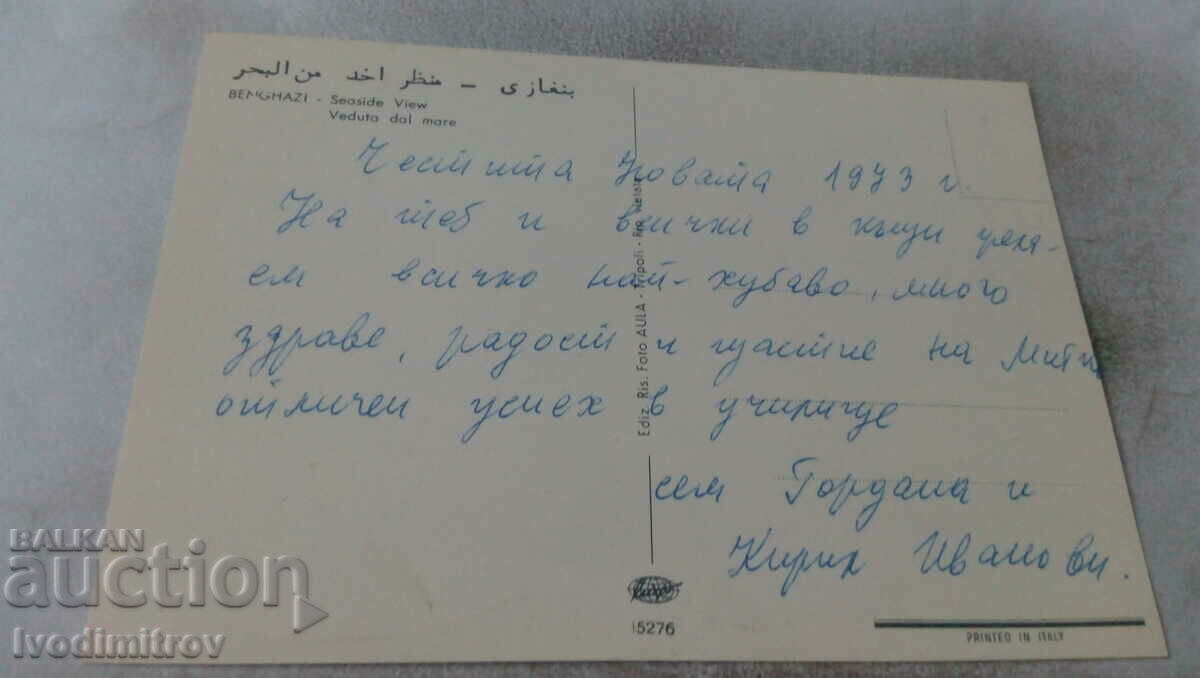 بنغازى – منظر اخذ من البحر
BENGHAZI - Seaside View
Veduta dal mare
Честита Новата 1973 г.
На теб и всички в къщи жела-
ем всичко най-хубаво, много
здраве, радост и щастие на Мити
отличен успех в училище
сем Гордана и
Кирил Иванови.
Ediz. Ris. Foto AULA - Tripoli - Rip. Vietata
15276
PRINTED IN ITALY
BALKAN
auction
Ivodimitrov